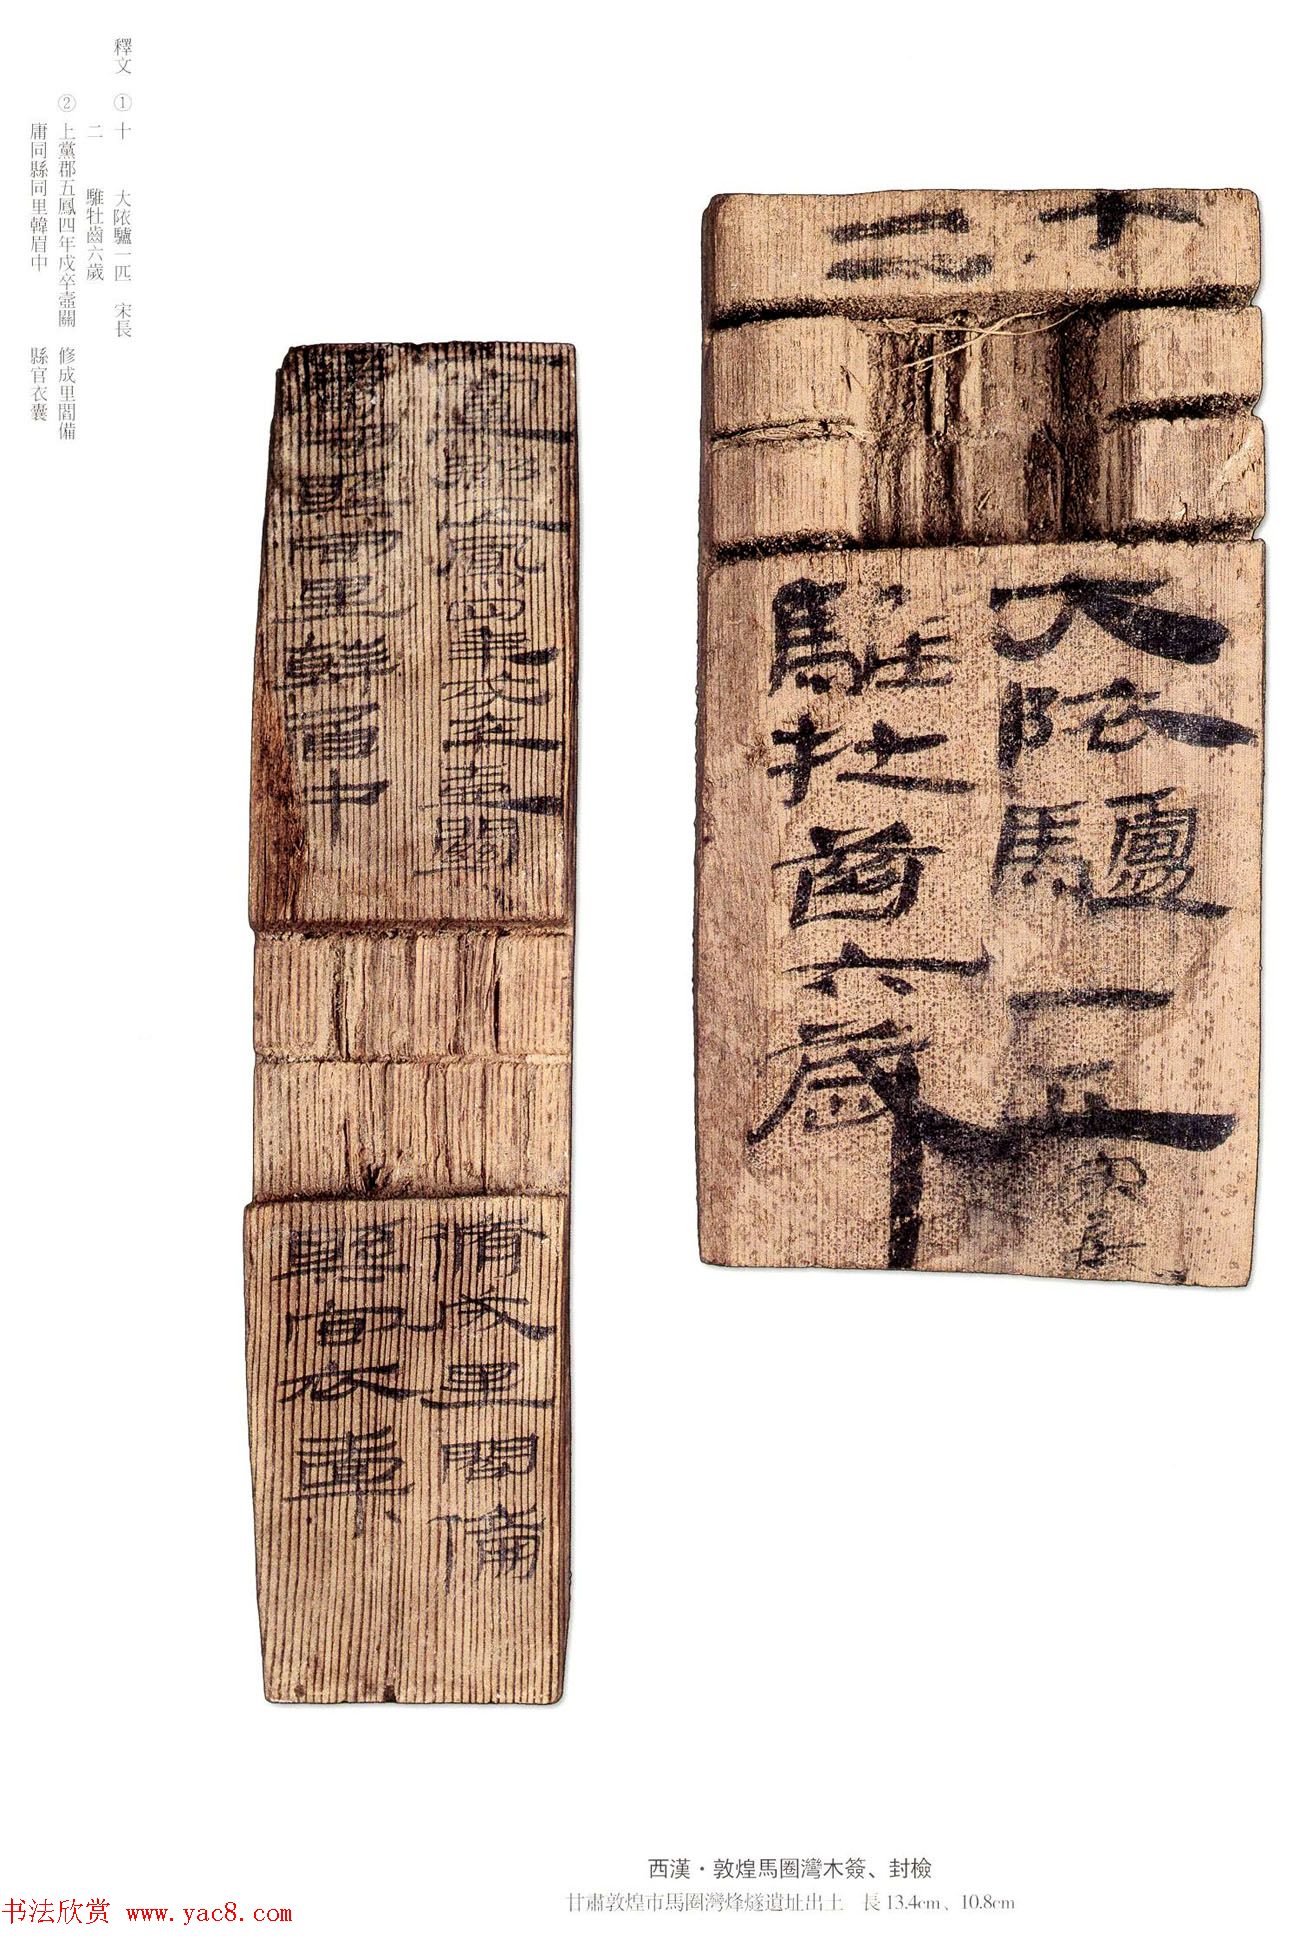 十
二
大驢一匹 宋長
騅牡齒六歲
上黨郡五鳳四年戍卒壺關
庸同縣同里韓眉中
修成里閻備
縣官衣橐
釋文 ① 十 大驢一匹 宋長
二 騅牡齒六歲
② 上黨郡五鳳四年戍卒壺關 修成里閻備
庸同縣同里韓眉中 縣官衣囊
西漢·敦煌馬圈灣木簽、封檢
甘肅敦煌市馬圈灣烽燧遺址出土 長 13.4cm、10.8cm
书法欣赏 www.yac8.com